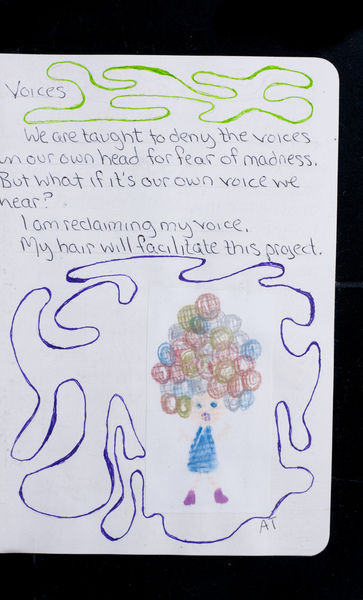 Voices
We are taught to deny the voices
in our own head for fear of madness.
But what if it's our own voice we
hear?
I am reclaiming my voice.
My hair will facilitate this project.
AT